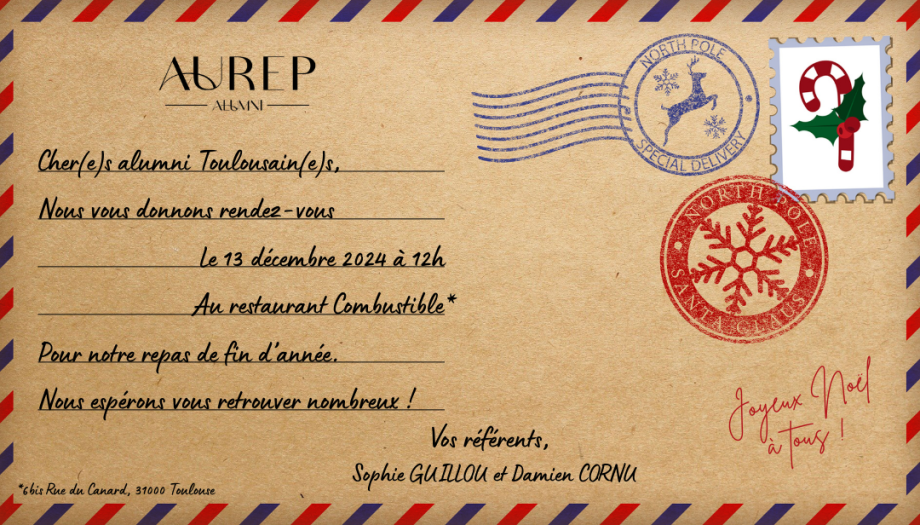 AUREP
ALUMNI
Cher(e)s alumni Toulousain(e)s,
Nous vous donnons rendez-vous
Le 13 décembre 2024 à 12h
Au restaurant Combustible*
Pour notre repas de fin d'année.
Nous espérons vous retrouver nombreux !
Vos référents,
Sophie GUILLOU et Damien CORNU
*6bis Rue du Canard, 31000 Toulouse
NORTH POLE
SPECIAL DELIVERY
NORTH POLE
SANTA CLAUS
Joyeux Noël
à tous !